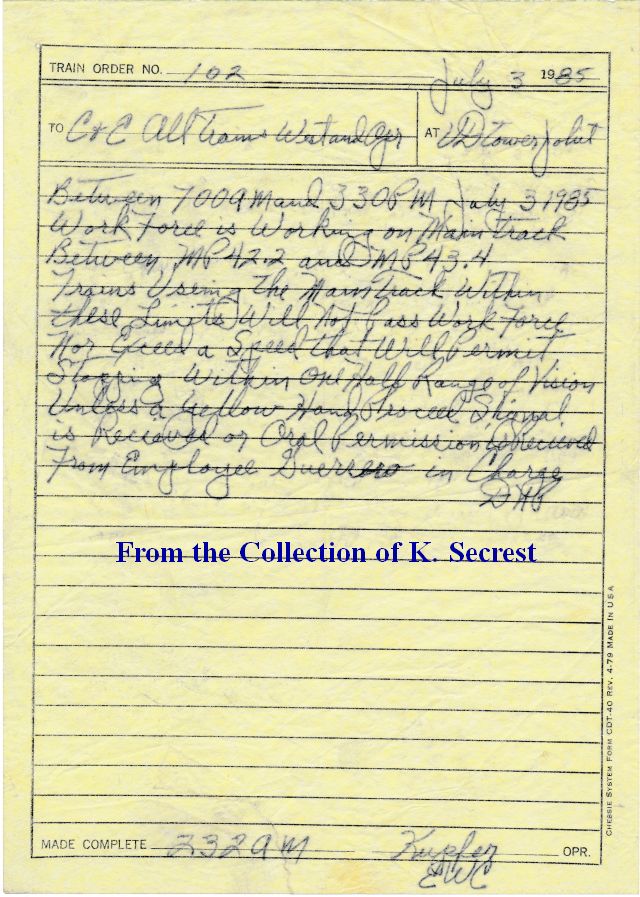 TRAIN ORDER NO. 102 July 3 1985
TO C+E All Trains West and Opr AT UD Tower Joliet
Between 700 AM and 330 PM July 3 1985
Work Force is Working on Main Track
Between MP 42.2 and MP 43.4
Trains Useing The Main Track Within
these Limits Will Not Pass Work Force
Nor Exceed a Speed that Will Permit
Stopping Within One Half Range of Vision
Unless a Yellow Hand Proceed Signal
is Recieved or Oral Permission is Recieved
From Employee Guerrero in Charge
From the Collection of K. Secrest
MADE COMPLETE 232 AM Kupfer OPR.
EWC
CHESSIE SYSTEM FORM CDT-40 REV. 4-79 MADE IN USA